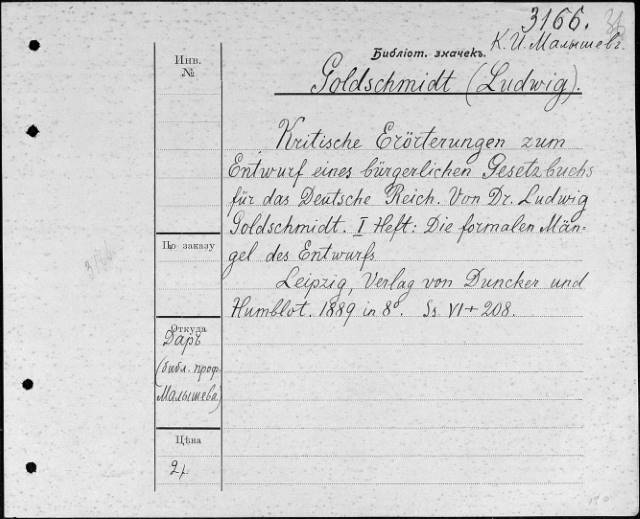 3166.
К. И. Малышевъ.
Библіот. значекъ.
Goldschmidt (Ludwig).
Инв.
№
Kritische Erörterungen zum
Entwurf eines bürgerlichen Gesetzbuchs
für das Deutsche Reich. Von Dr. Ludwig
Goldschmidt. I Heft: Die formalen Män-
gel des Entwurfs
Leipzig, Verlag von Duncker und
Humblot. 1889 in 8°. Ss. VI + 208.
По заказу
Откуда
Даръ
(библ. проф.
Малышева)
Цѣна